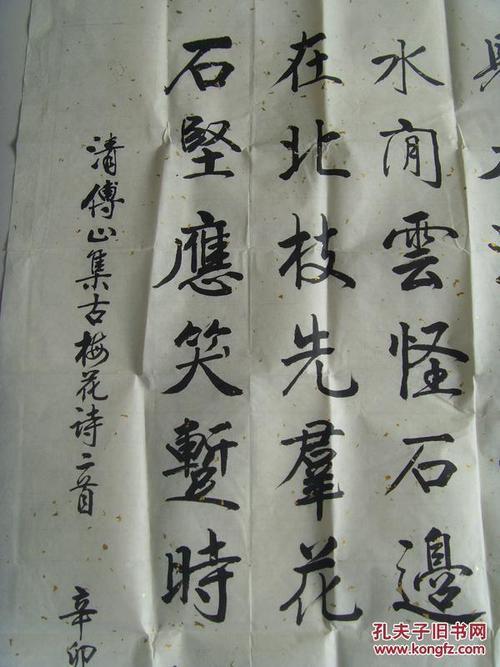 水閒雲怪石邊
在北枝先羣花
石堅應笑蹔時
清傅山集古梅花詩二首
辛卯
孔夫子旧书网
www.kongfz.com